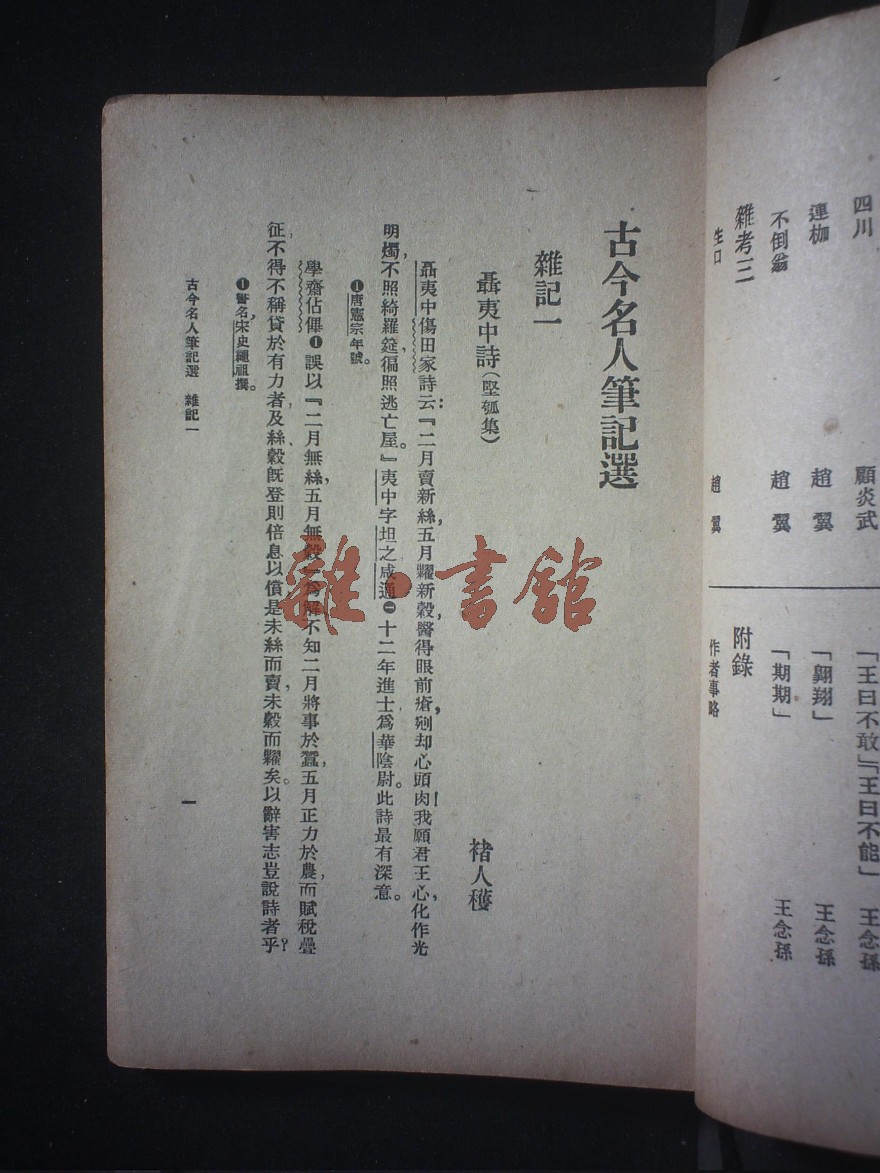 四川　顧炎武
連枷　趙翼
不倒翁　趙翼
雜考三
生口　趙翼
「王曰不敢」「王曰不能」　王念孫
「翱翔」　王念孫
「期期」　王念孫
附錄
作者事略
古今名人筆記選
雜記一
聶夷中詩（堅瓠集）　褚人穫
聶夷中傷田家詩云：『二月賣新絲，五月糶新穀，醫得眼前瘡，剜却心頭肉！我願君王心，化作光
明燭，不照綺羅筵，徧照逃亡屋。』夷中字坦之，咸通❶十二年進士，爲華陰尉。此詩最有深意。
❶唐憲宗年號。
學齋佔俾❶誤以『二月無絲，五月無穀』爲解，不知二月將事於蠶，五月正力於農，而賦稅疊
征，不得不稱貸於有力者，及絲穀旣登，則倍息以償，是未絲而賣，未穀而糶矣。以辭害志，豈說詩者乎？
❶書名，宋史繩祖撰。
古今名人筆記選　雜記一
一
雜·書館